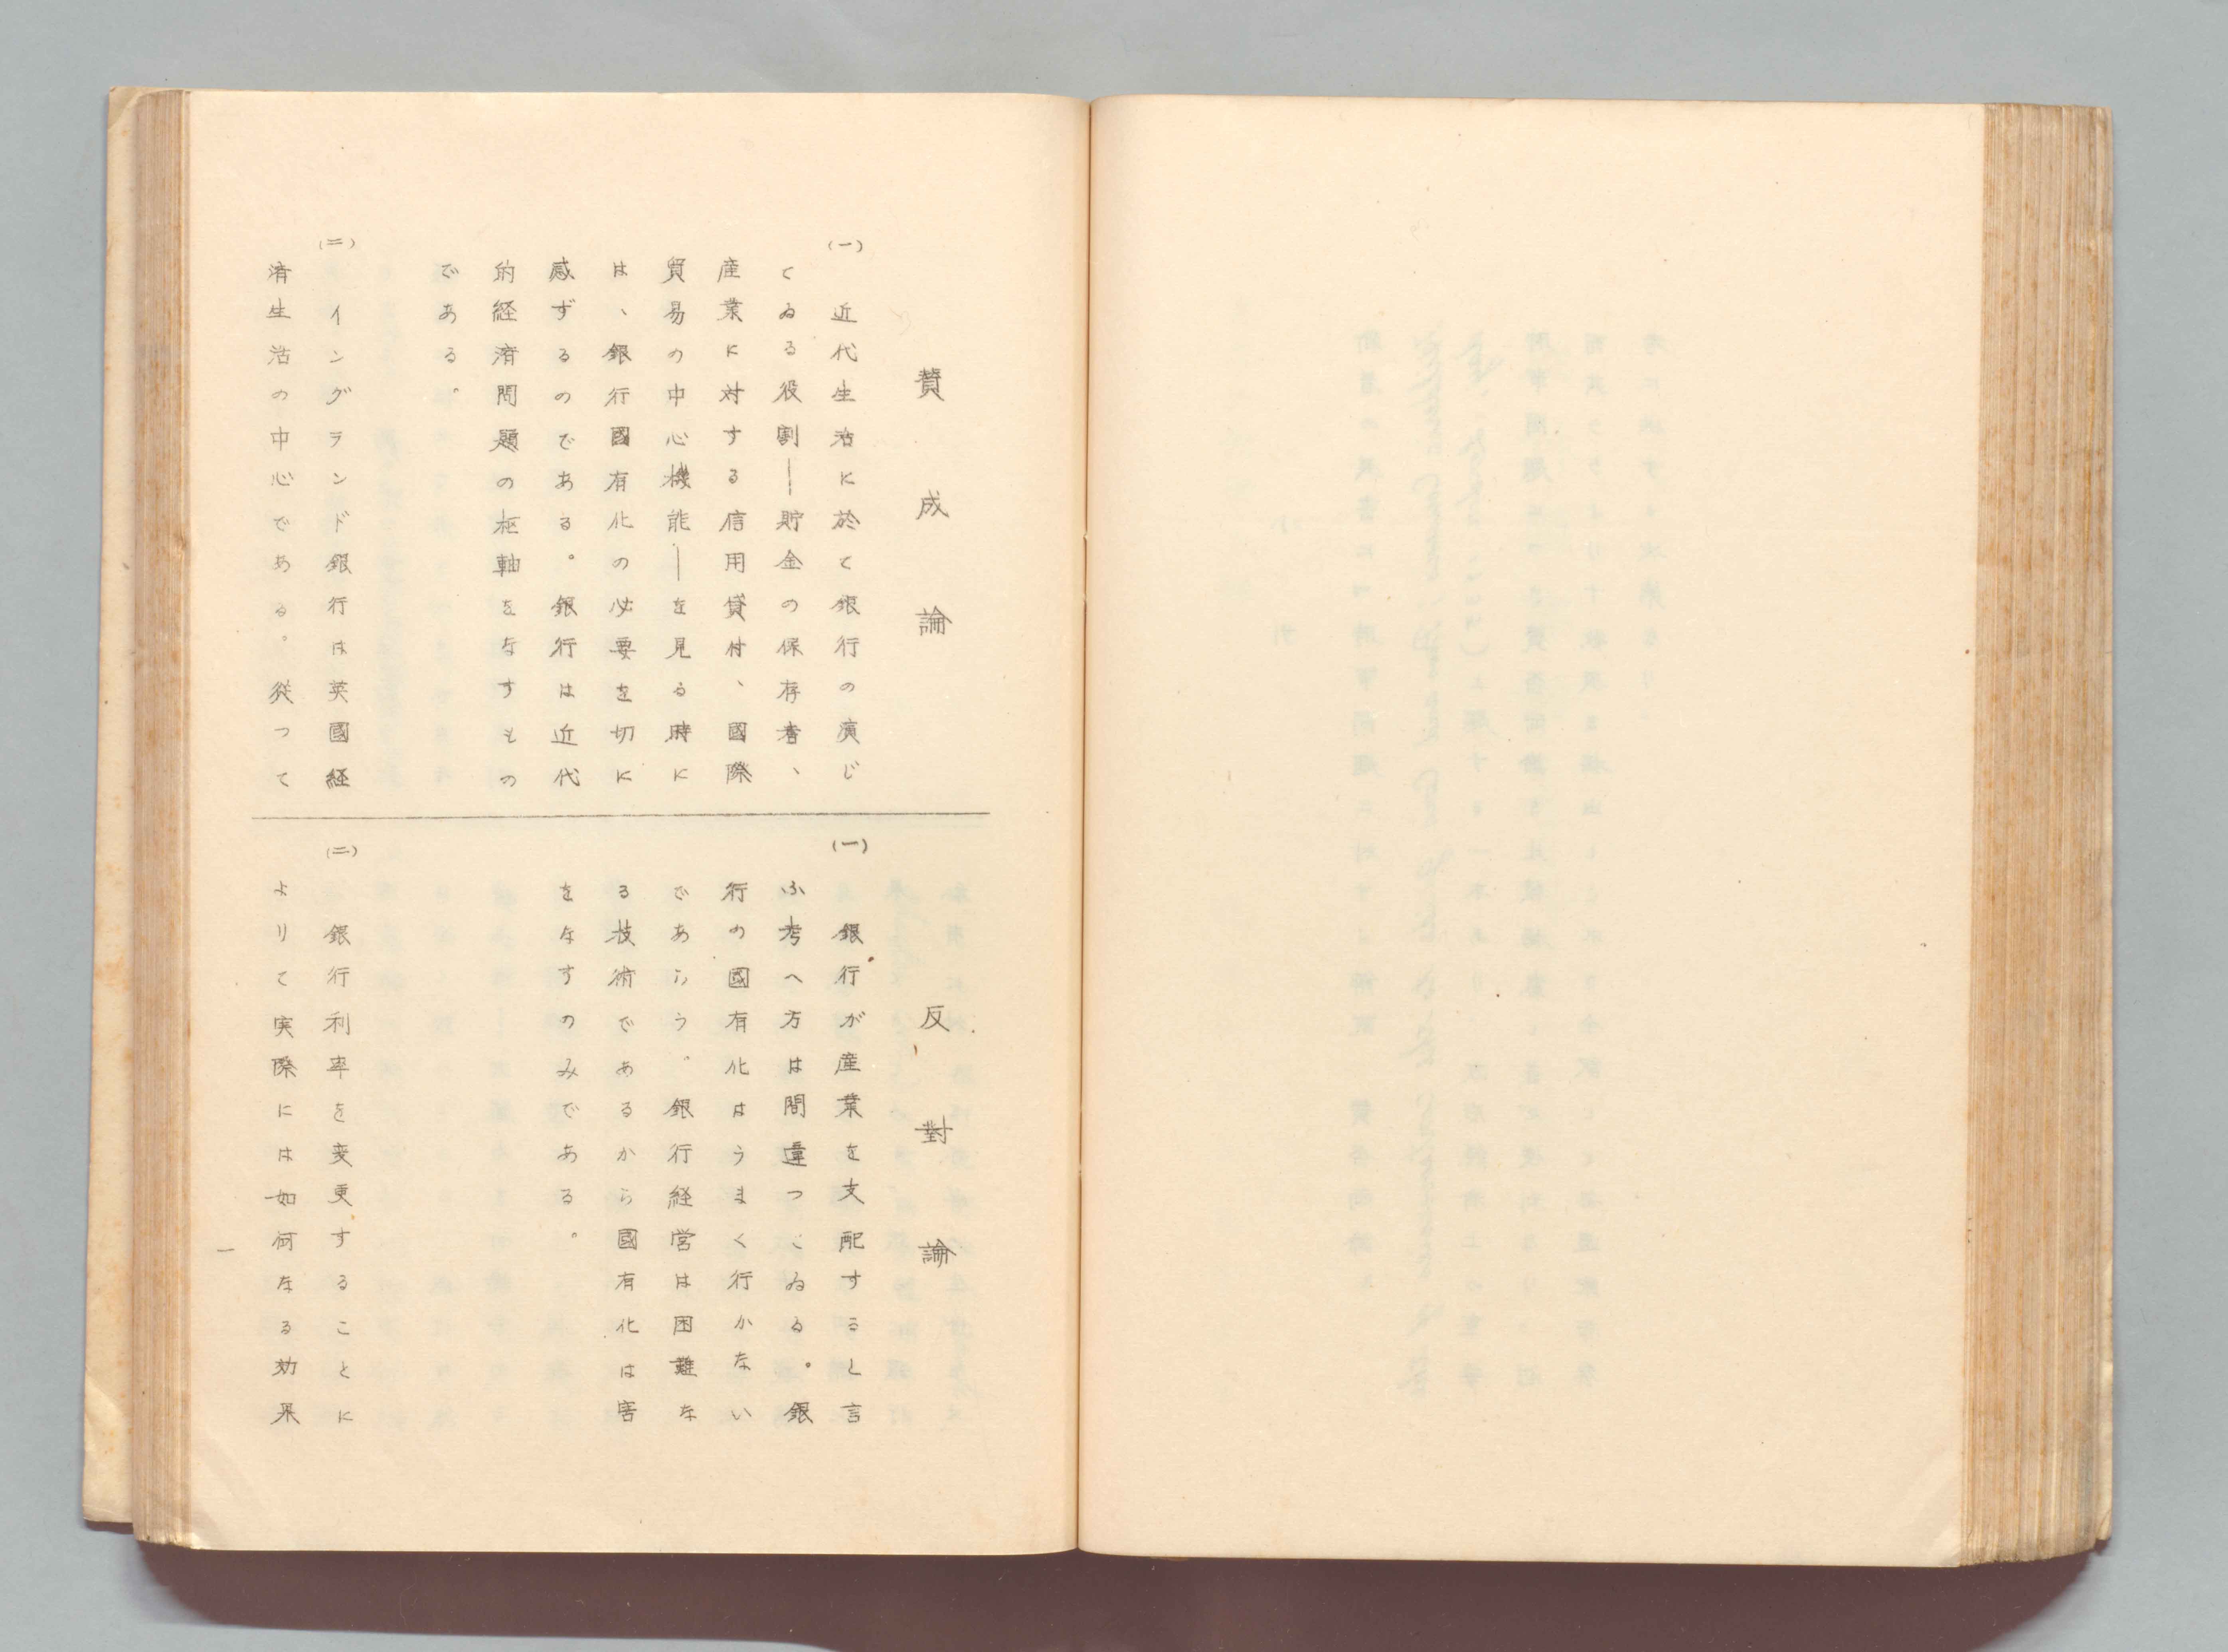 賛成論
(一) 近代生活に於て銀行の演じ
てゐる役割―貯金の保存者、
産業に対する信用貸付、國際
貿易の中心機能―を見る時に
は、銀行國有化の必要を切に
感ずるのである。銀行は近代
的経済問題の枢軸をなすもの
である。
(二) イングランド銀行は英國経
済生活の中心である。従つて
反對論
(一) 銀行が産業を支配すると言
ふ考へ方は間違つてゐる。銀
行の國有化はうまく行かない
であらう。銀行経営は困難な
る技術であるから國有化は害
をなすのみである。
(二) 銀行利率を変更することに
よりて実際には如何なる効果
一